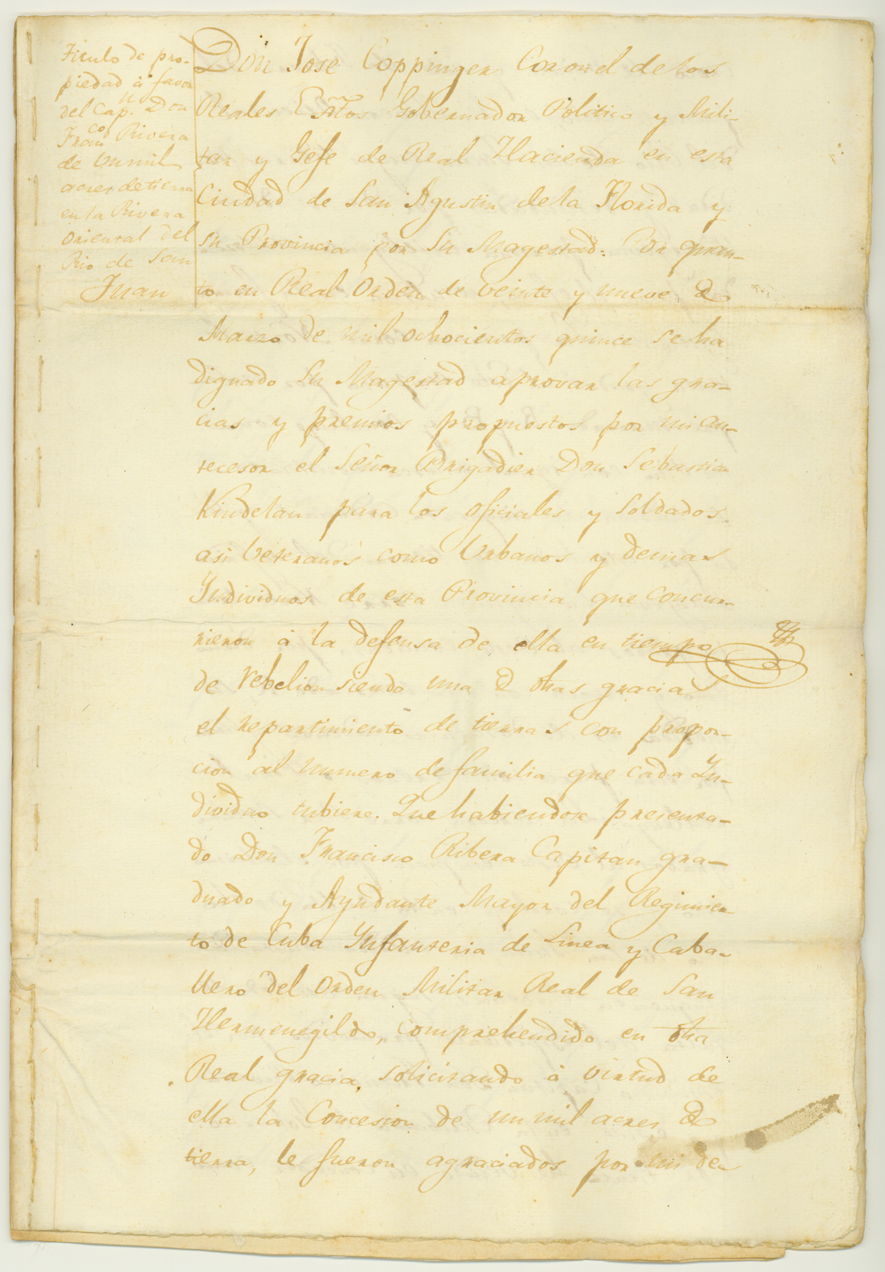 Titulo de pro-
piedad á favor
del Cap.n Don
Fran.co Rivera
de un mil
acres de tierra
en la Rivera
Oriental del
Rio de San
Juan
Don Jose Coppinger Coronel de los
Reales Extos Gobernador Politico y Mili-
tar y Gefe de Real Hacienda en esta
Ciudad de San Agustin de la Florida y
su Provincia por Su Magestad. Por quan-
to en Real Orden de veinte y nueve de
Marzo de mil ochocientos quince se ha
dignado Su Magestad aprovar las gra-
cias y premios propuestos por mi an-
tecesor el Señor Brigadier Don Sebastian
Kindelan para los oficiales y soldados
asi Veteranos como Urbanos y demas
Individuos de esta Provincia que concur-
rieron á la defensa de ella en tiempo
de rebelion siendo una de dhas gracias
el repartimiento de tierras con propor-
cion al numero de familia que cada In-
dividuo tubiere. Que habiendose presenta-
do Don Francisco Ribera Capitan gra-
duado y Ayudante Mayor del Regimien-
to de Cuba Infanteria de Linea y Caba-
llero del Orden Militar Real de San
Hermenegildo, comprehendido en dha
Real gracia, solicitando á virtud de
ella la Concesion de un mil acres de
tierra, le fueron agraciados por mi de-